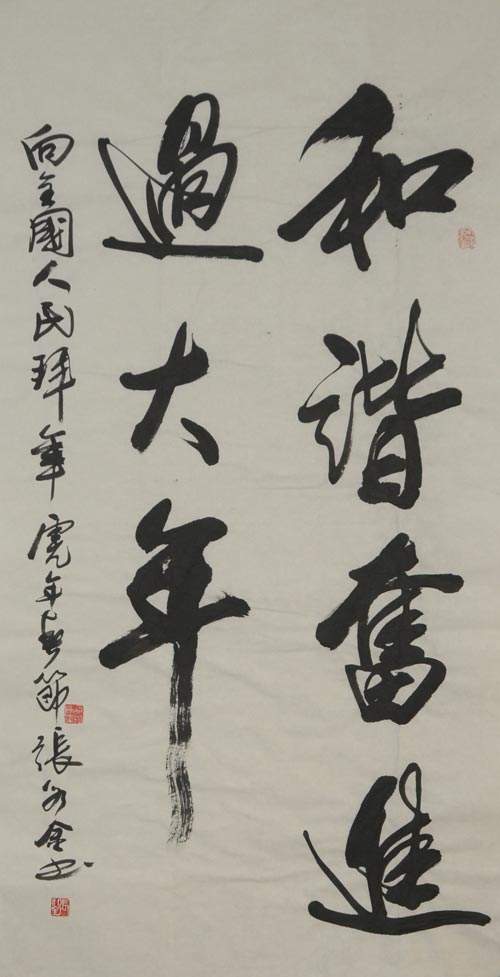 和諧奮進
過大年
向全國人民拜年 虎年春節 張書